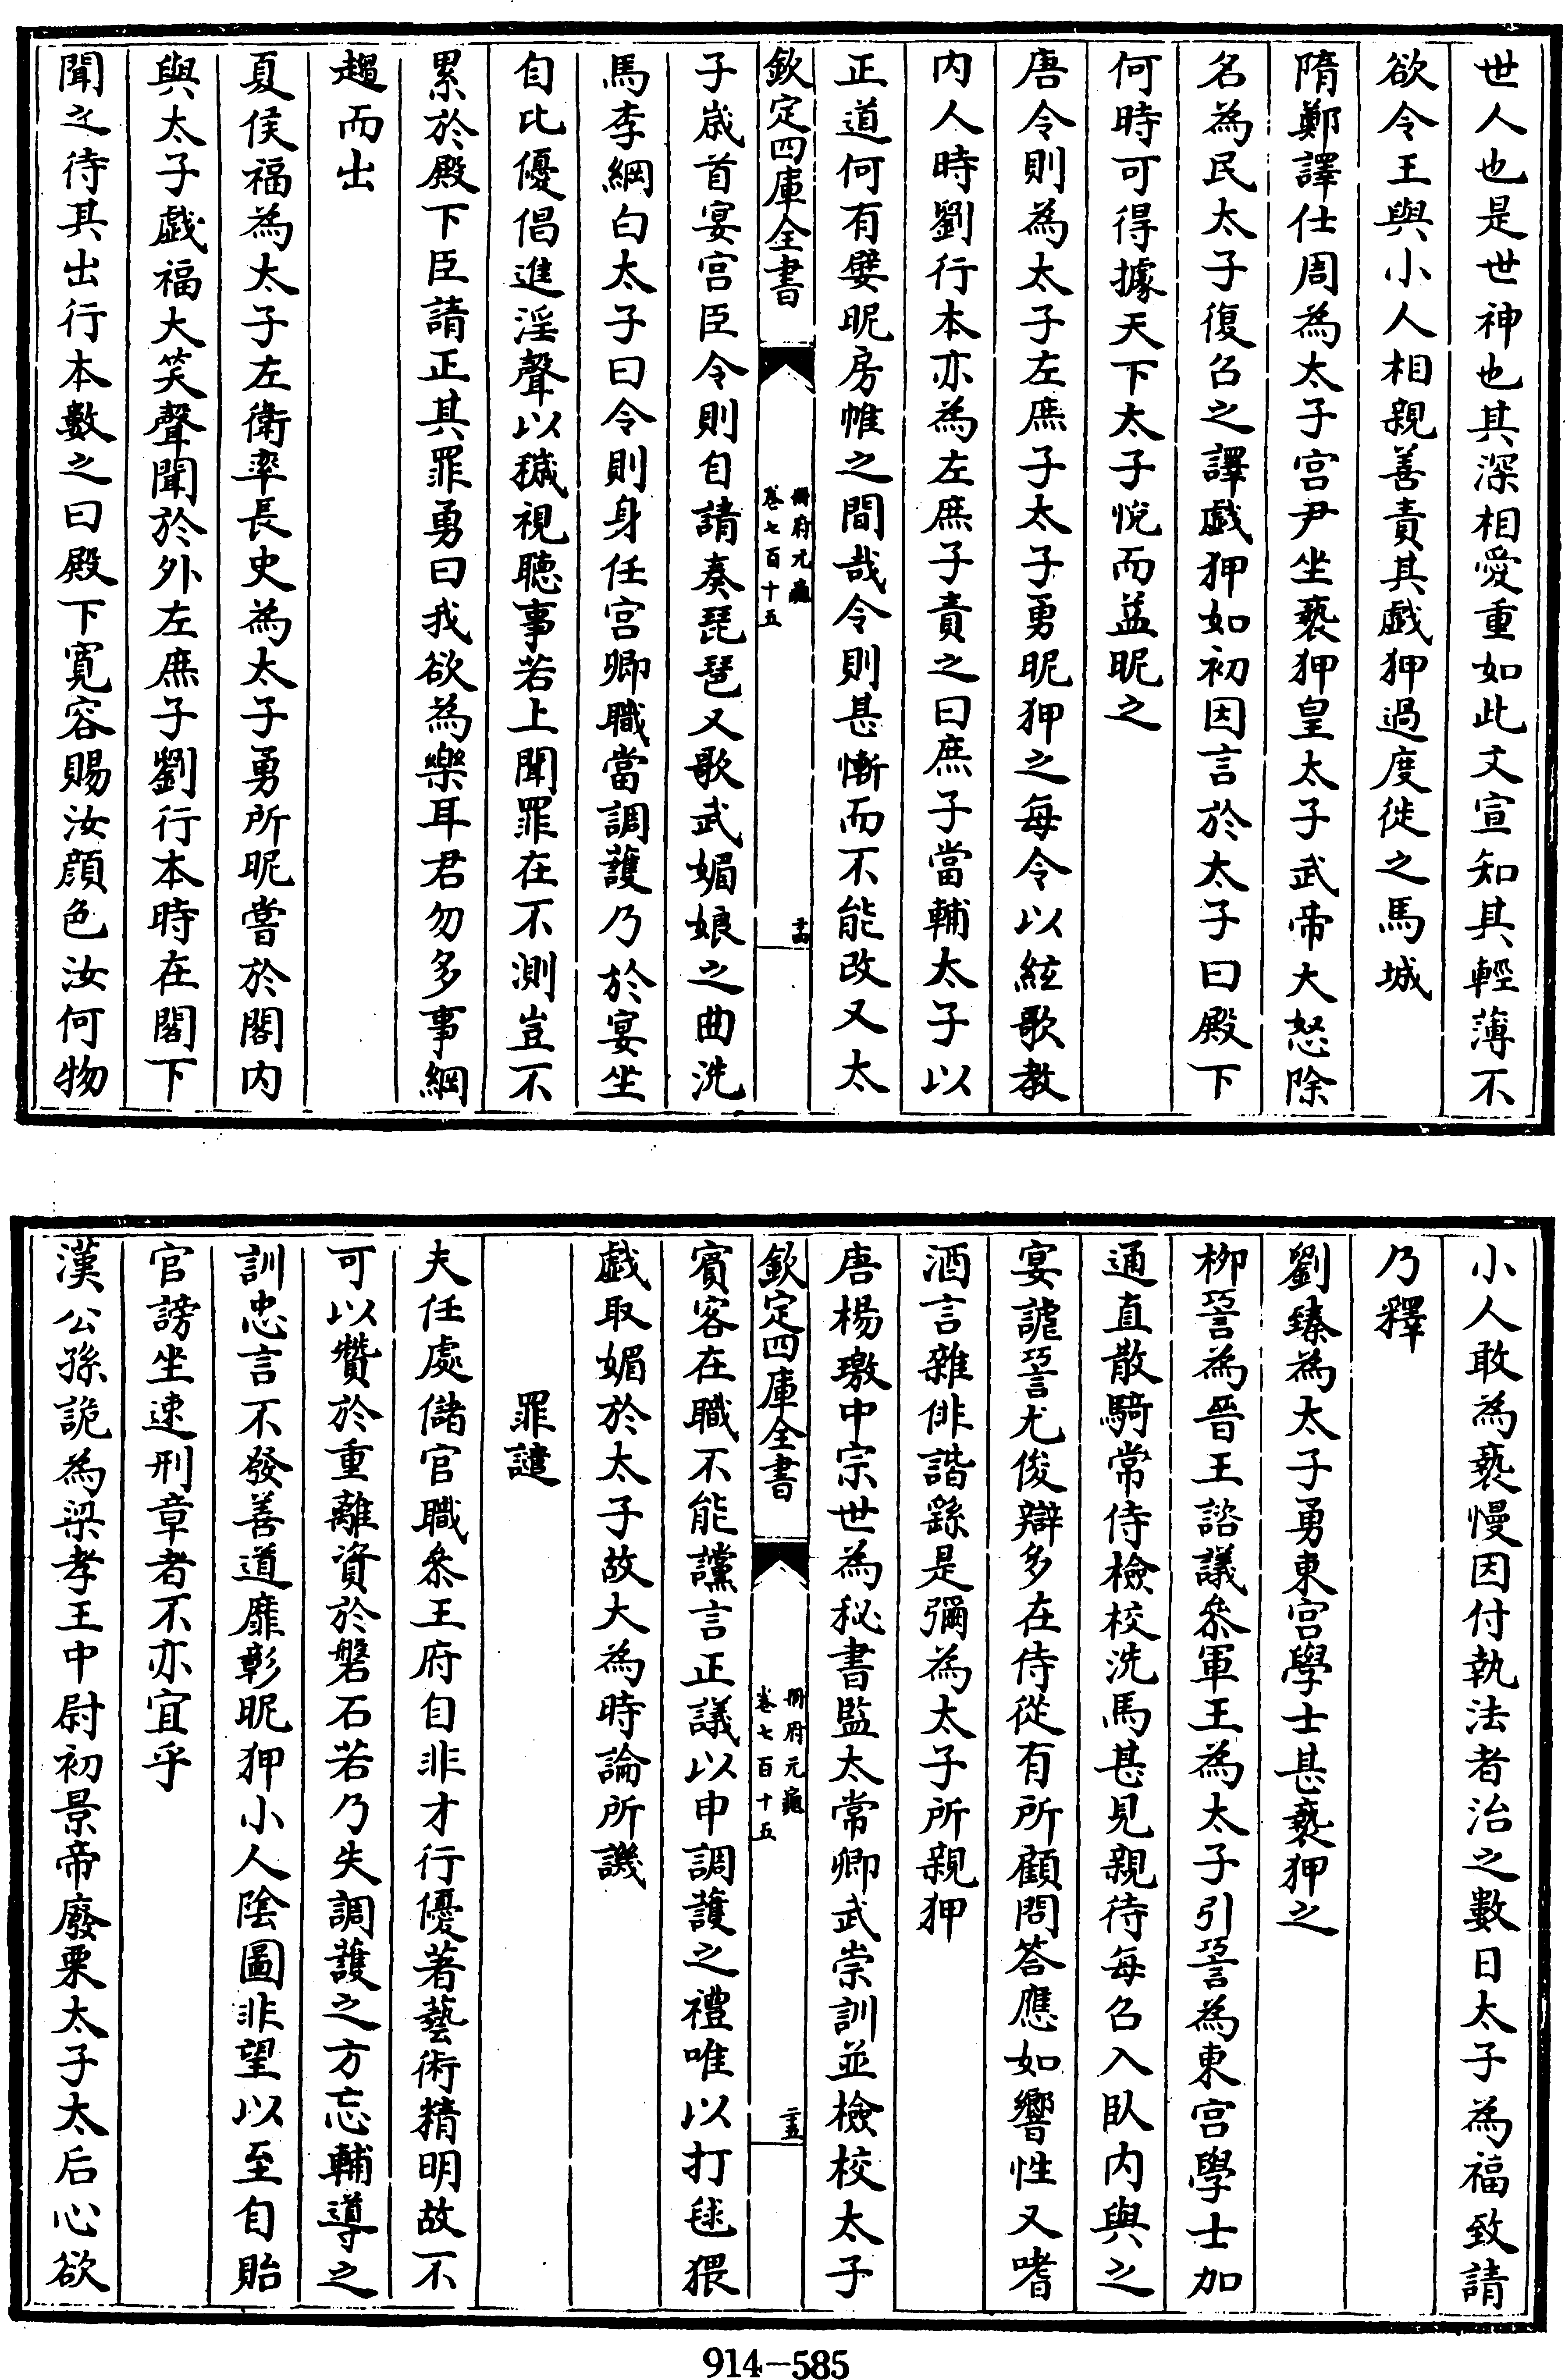 世人也是世神也其深相愛重如此文宣知其輕薄不
欲令王與小人相親善責其戲狎過度徙之馬城
隋鄭譯仕周為太子宫尹坐褻狎皇太子武帝大怒除
名為民太子復召之譯戲狎如初因言於太子曰殿下
何時可得據天下太子悅而益昵之
唐令則為太子左庶子太子勇昵狎之每令以絃歌教
内人時劉行本亦為左庶子責之曰庶子當輔太子以
正道何有嬖昵房帷之間哉令則甚慚而不能改又太
欽定四庫全書
册府元龜
卷七百十五
十四
子歲首宴宫臣令則自請奏琵琶又歌武媚娘之曲洗
馬李綱白太子曰令則身任宫卿職當調護乃於宴坐
自比優倡進淫聲以穢視聽事若上聞罪在不測豈不
累於殿下臣請正其罪勇曰我欲為樂耳君勿多事綱
趨而出
夏侯福為太子左衛率長史為太子勇所昵嘗於閤内
與太子戲福大笑聲聞於外左庶子劉行本時在閤下
聞之待其出行本數之曰殿下寬容賜汝顔色汝何物
小人敢為褻慢因付執法者治之數日太子為福致請
乃釋
劉臻為太子勇東宫學士甚褻狎之
柳䛒為晉王諮議叅軍王為太子引䛒為東宫學士加
通直散騎常侍檢校洗馬甚見親待每召入臥内與之
宴謔䛒尤俊辯多在侍從有所顧問答應如響性又嗜
酒言雜俳諧繇是彌為太子所親狎
唐楊璬中宗世為秘書監太常卿武崇訓並檢校太子
欽定四庫全書
册府元龜
卷七百十五
十五
賓客在職不能讜言正議以申調護之禮唯以打毬猥
戲取媚於太子故大為時論所譏
罪譴
夫任處儲官職叅王府自非才行優著藝術精明故不
可以贊於重離資於磐石若乃失調護之方忘輔導之
訓忠言不發善道靡彰昵狎小人陰圖非望以至自貽
官謗坐速刑章者不亦宜乎
漢公孫詭為梁孝王中尉初景帝廢栗太子太后心欲
914-585